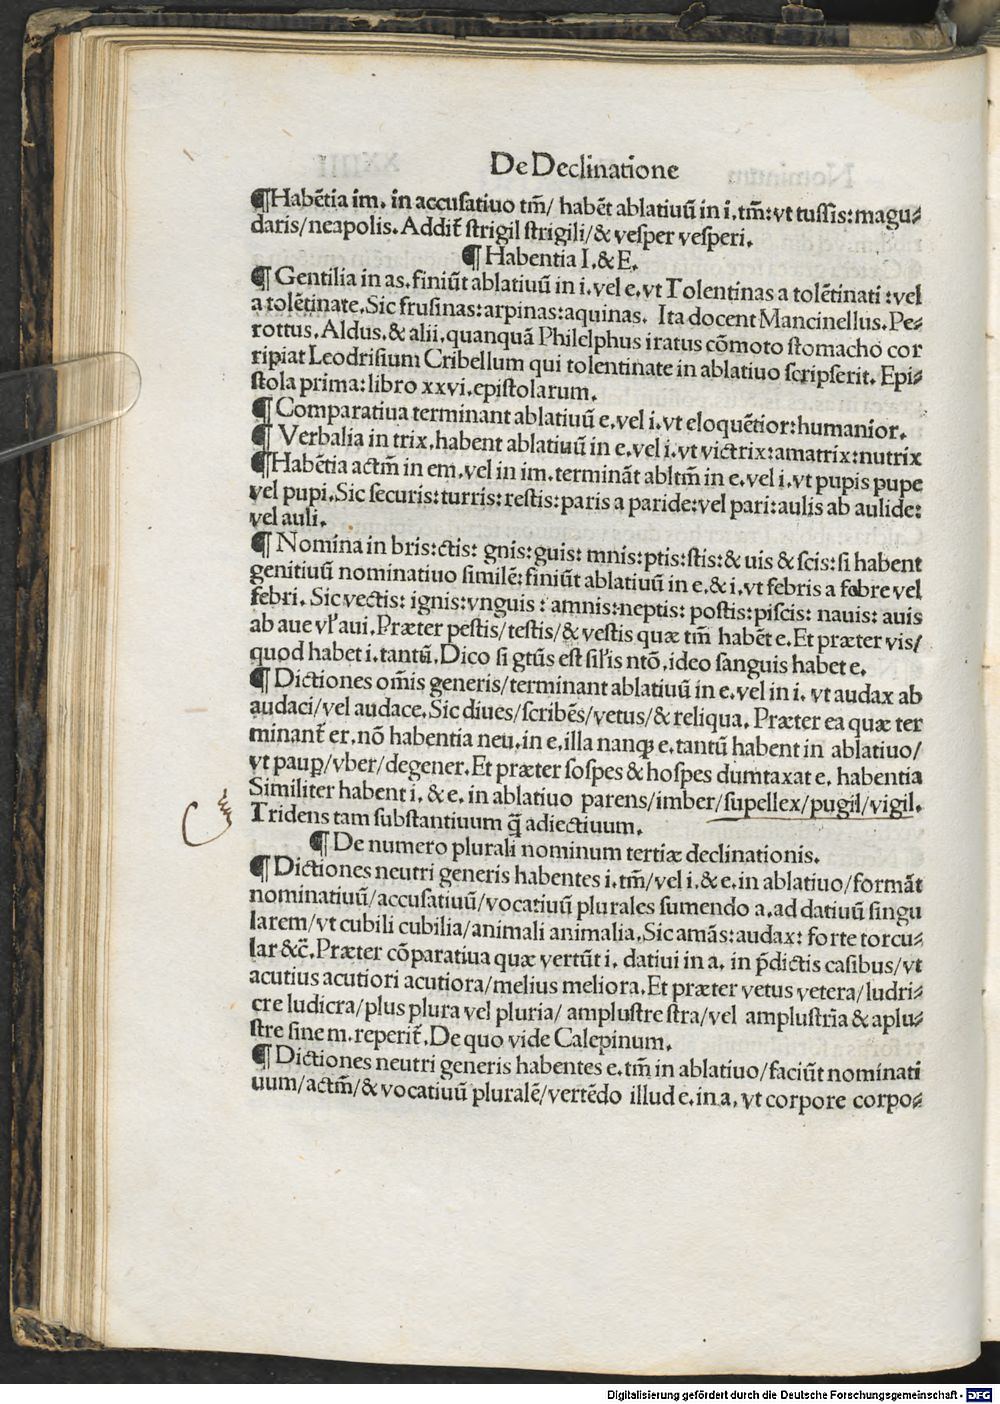 De Declinatione
¶Habẽtia im. in accusatiuo tm̃/ habẽt ablatiuũ in i. tm̃: vt tussis: magu⸗
daris/neapolis. Addit᷑ strigil strigili/& vesper vesperi.
¶ Habentia I. & E.
¶ Gentilia in as. finiũt ablatiuũ in i. vel e. vt Tolentinas a tolẽtinati: vel
a tolẽtinate. Sic frusinas: arpinas: aquinas. Ita docent Mancinellus. Pe⸗
rottus. Aldus. & alii. quanquã Philelphus iratus cõmoto stomacho cor
ripiat Leodrisium Cribellum qui tolentinate in ablatiuo scripserit. Epi⸗
stola prima: libro xxvi. epistolarum.
¶ Comparatiua terminant ablatiuũ e. vel i. vt eloquẽtior: humanior.
¶ Verbalia in trix. habent ablatiuũ in e. vel i. vt victrix: amatrix: nutrix
¶Habẽtia actm̃ in em. vel in im. terminãt abltm̃ in e. vel i. vt pupis pupe
vel pupi. Sic securis: turris: restis: paris a paride: vel pari: aulis ab aulide:
vel auli.
¶ Nomina in bris: ctis: gnis: guis: mnis: ptis: stis: & uis & scis: si habent
genitiuũ nominatiuo similẽ: finiũt ablatiuũ in e. & i. vt febris a febre vel
febri. Sic vectis: ignis: vnguis: amnis: neptis: postis: piscis: nauis: auis
ab aue vl̕ aui. Præter pestis/testis/& vestis quæ tm̃ habẽt e. Et præter vis/
quod habet i. tantũ. Dico si gtũs est sil̕is ntõ. ideo sanguis habet e.
¶ Dictiones om̃is generis/terminant ablatiuũ in e. vel in i. vt audax ab
audaci/vel audace. Sic diues/scribẽs/vetus/& reliqua. Præter ea quæ ter
minant᷑ er. nõ habentia neu. in e. illa nanqꝫ e. tantũ habent in ablatiuo/
vt paup̱/vber/degener. Et præter sospes & hospes dumtaxat e. habentia
Similiter habent i. & e. in ablatiuo parens/imber/supellex/pugil/vigil.
Tridens tam substantiuum q̃ adiectiuum.
¶ De numero plurali nominum tertiæ declinationis.
¶ Dictiones neutri generis habentes i. tm̃/vel i. & e. in ablatiuo/formãt
nominatiuũ/accusatiuũ/vocatiuũ plurales sumendo a. ad datiuũ singu
larem/vt cubili cubilia/animali animalia. Sic amãs: audax: forte torcu⸗
lar &c̃. Præter cõparatiua quæ vertũt i. datiui in a. in p̃dictis casibus/vt
acutius acutiori acutiora/melius meliora. Et præter vetus vetera/ludri⸗
cre ludicra/plus plura vel pluria/ amplustre stra/vel amplustria & aplu⸗
stre sine m. reperit᷑. De quo vide Calepinum.
¶ Dictiones neutri generis habentes e. tm̃ in ablatiuo/faciũt nominati
uum/actm̃/& vocatiuũ pluralẽ/vertẽdo illud e. in a. vt corpore corpo⸗
Digitalisierung gefördert durch die Deutsche Forschungsgemeinschaft - DFG